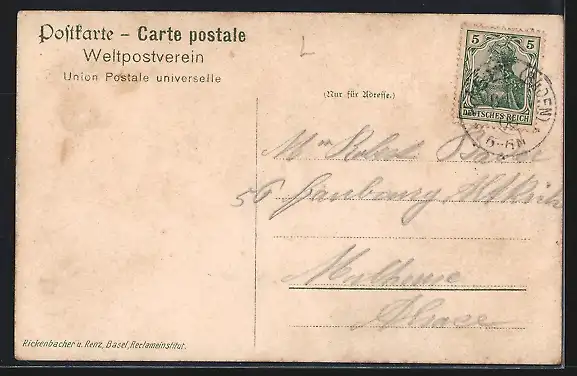 Postkarte – Carte postale
Weltpostverein
Union Postale universelle
(Nur für Adresse.)
5 5
DEUTSCHES REICH
(BADEN)
6-7N
Robert
56 Faubourg
Mulhouse
Alsace
Rickenbacher u. Renz, Basel, Reclameinstitut.